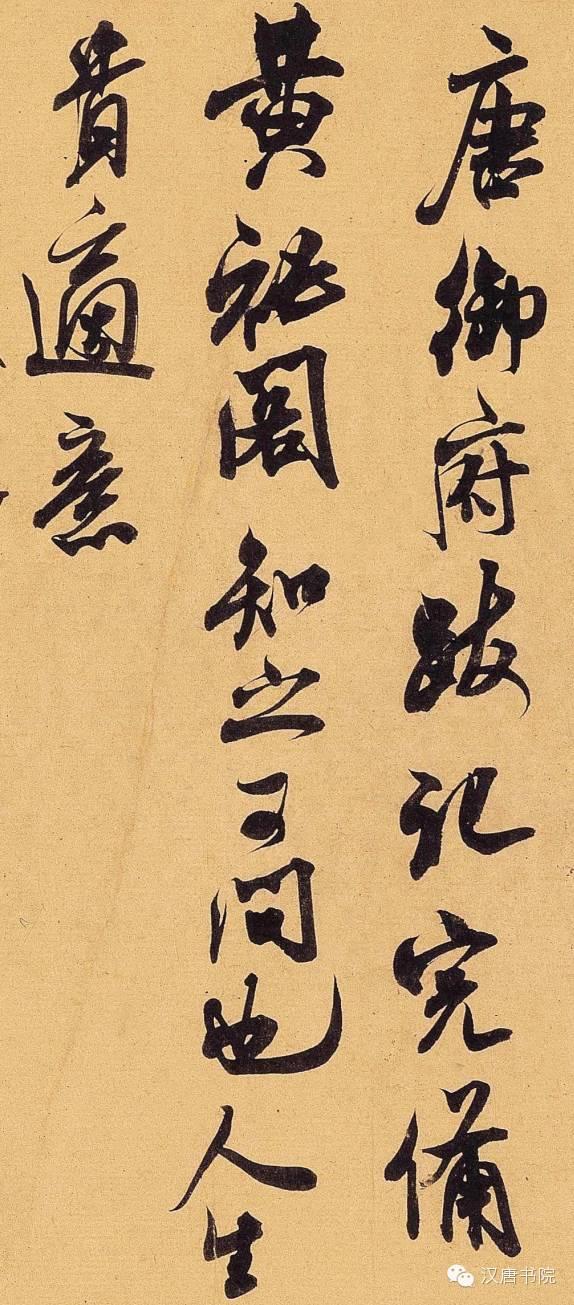 唐御府跋記完備
黄祕閣知之可問也人生
貴適意
汉唐书院